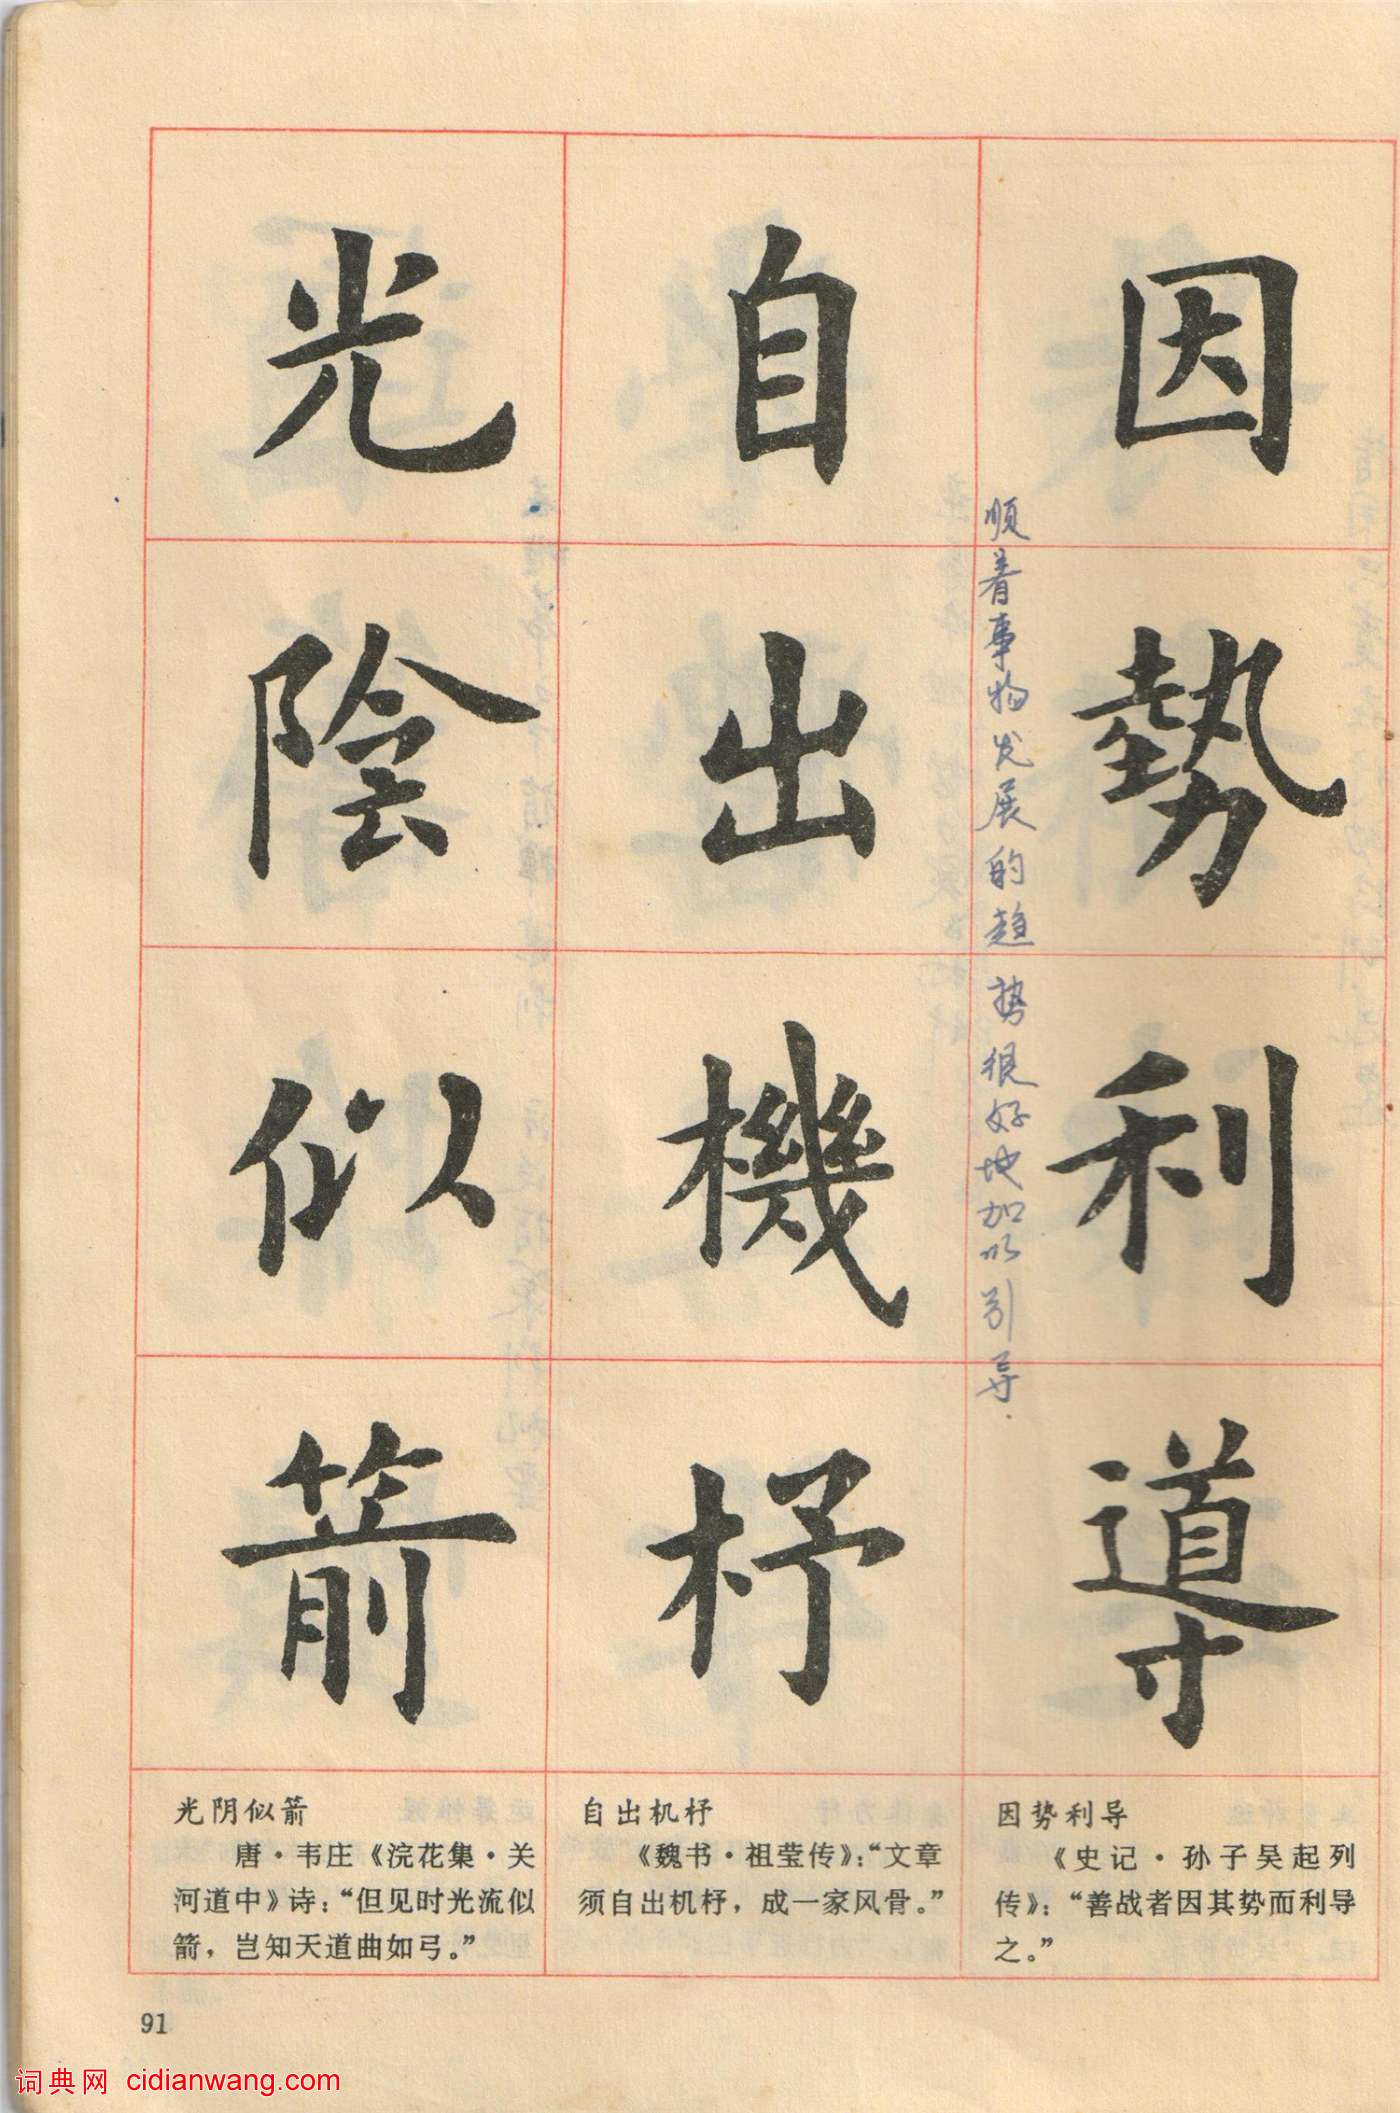 因勢利導
顺着事物发展的趋势很好地加以引导.
自出機杼
光陰似箭
因势利导
《史记·孙子吴起列
传》：“善战者因其势而利导
之。”
自出机杼
《魏书·祖莹传》：“文章
须自出机杼，成一家风骨。”
光阴似箭
唐·韦庄《浣花集·关
河道中》诗：“但见时光流似
箭，岂知天道曲如弓。”
91
词典网 cidianwang.com